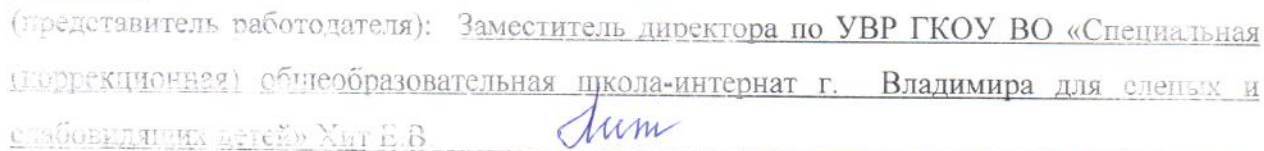 (представитель работодателя): Заместитель директора по УВР ГКОУ ВО «Специальная
(коррекционная) общеобразовательная школа-интернат г. Владимира для слепых и
слабовидящих детей» Хит Е.В